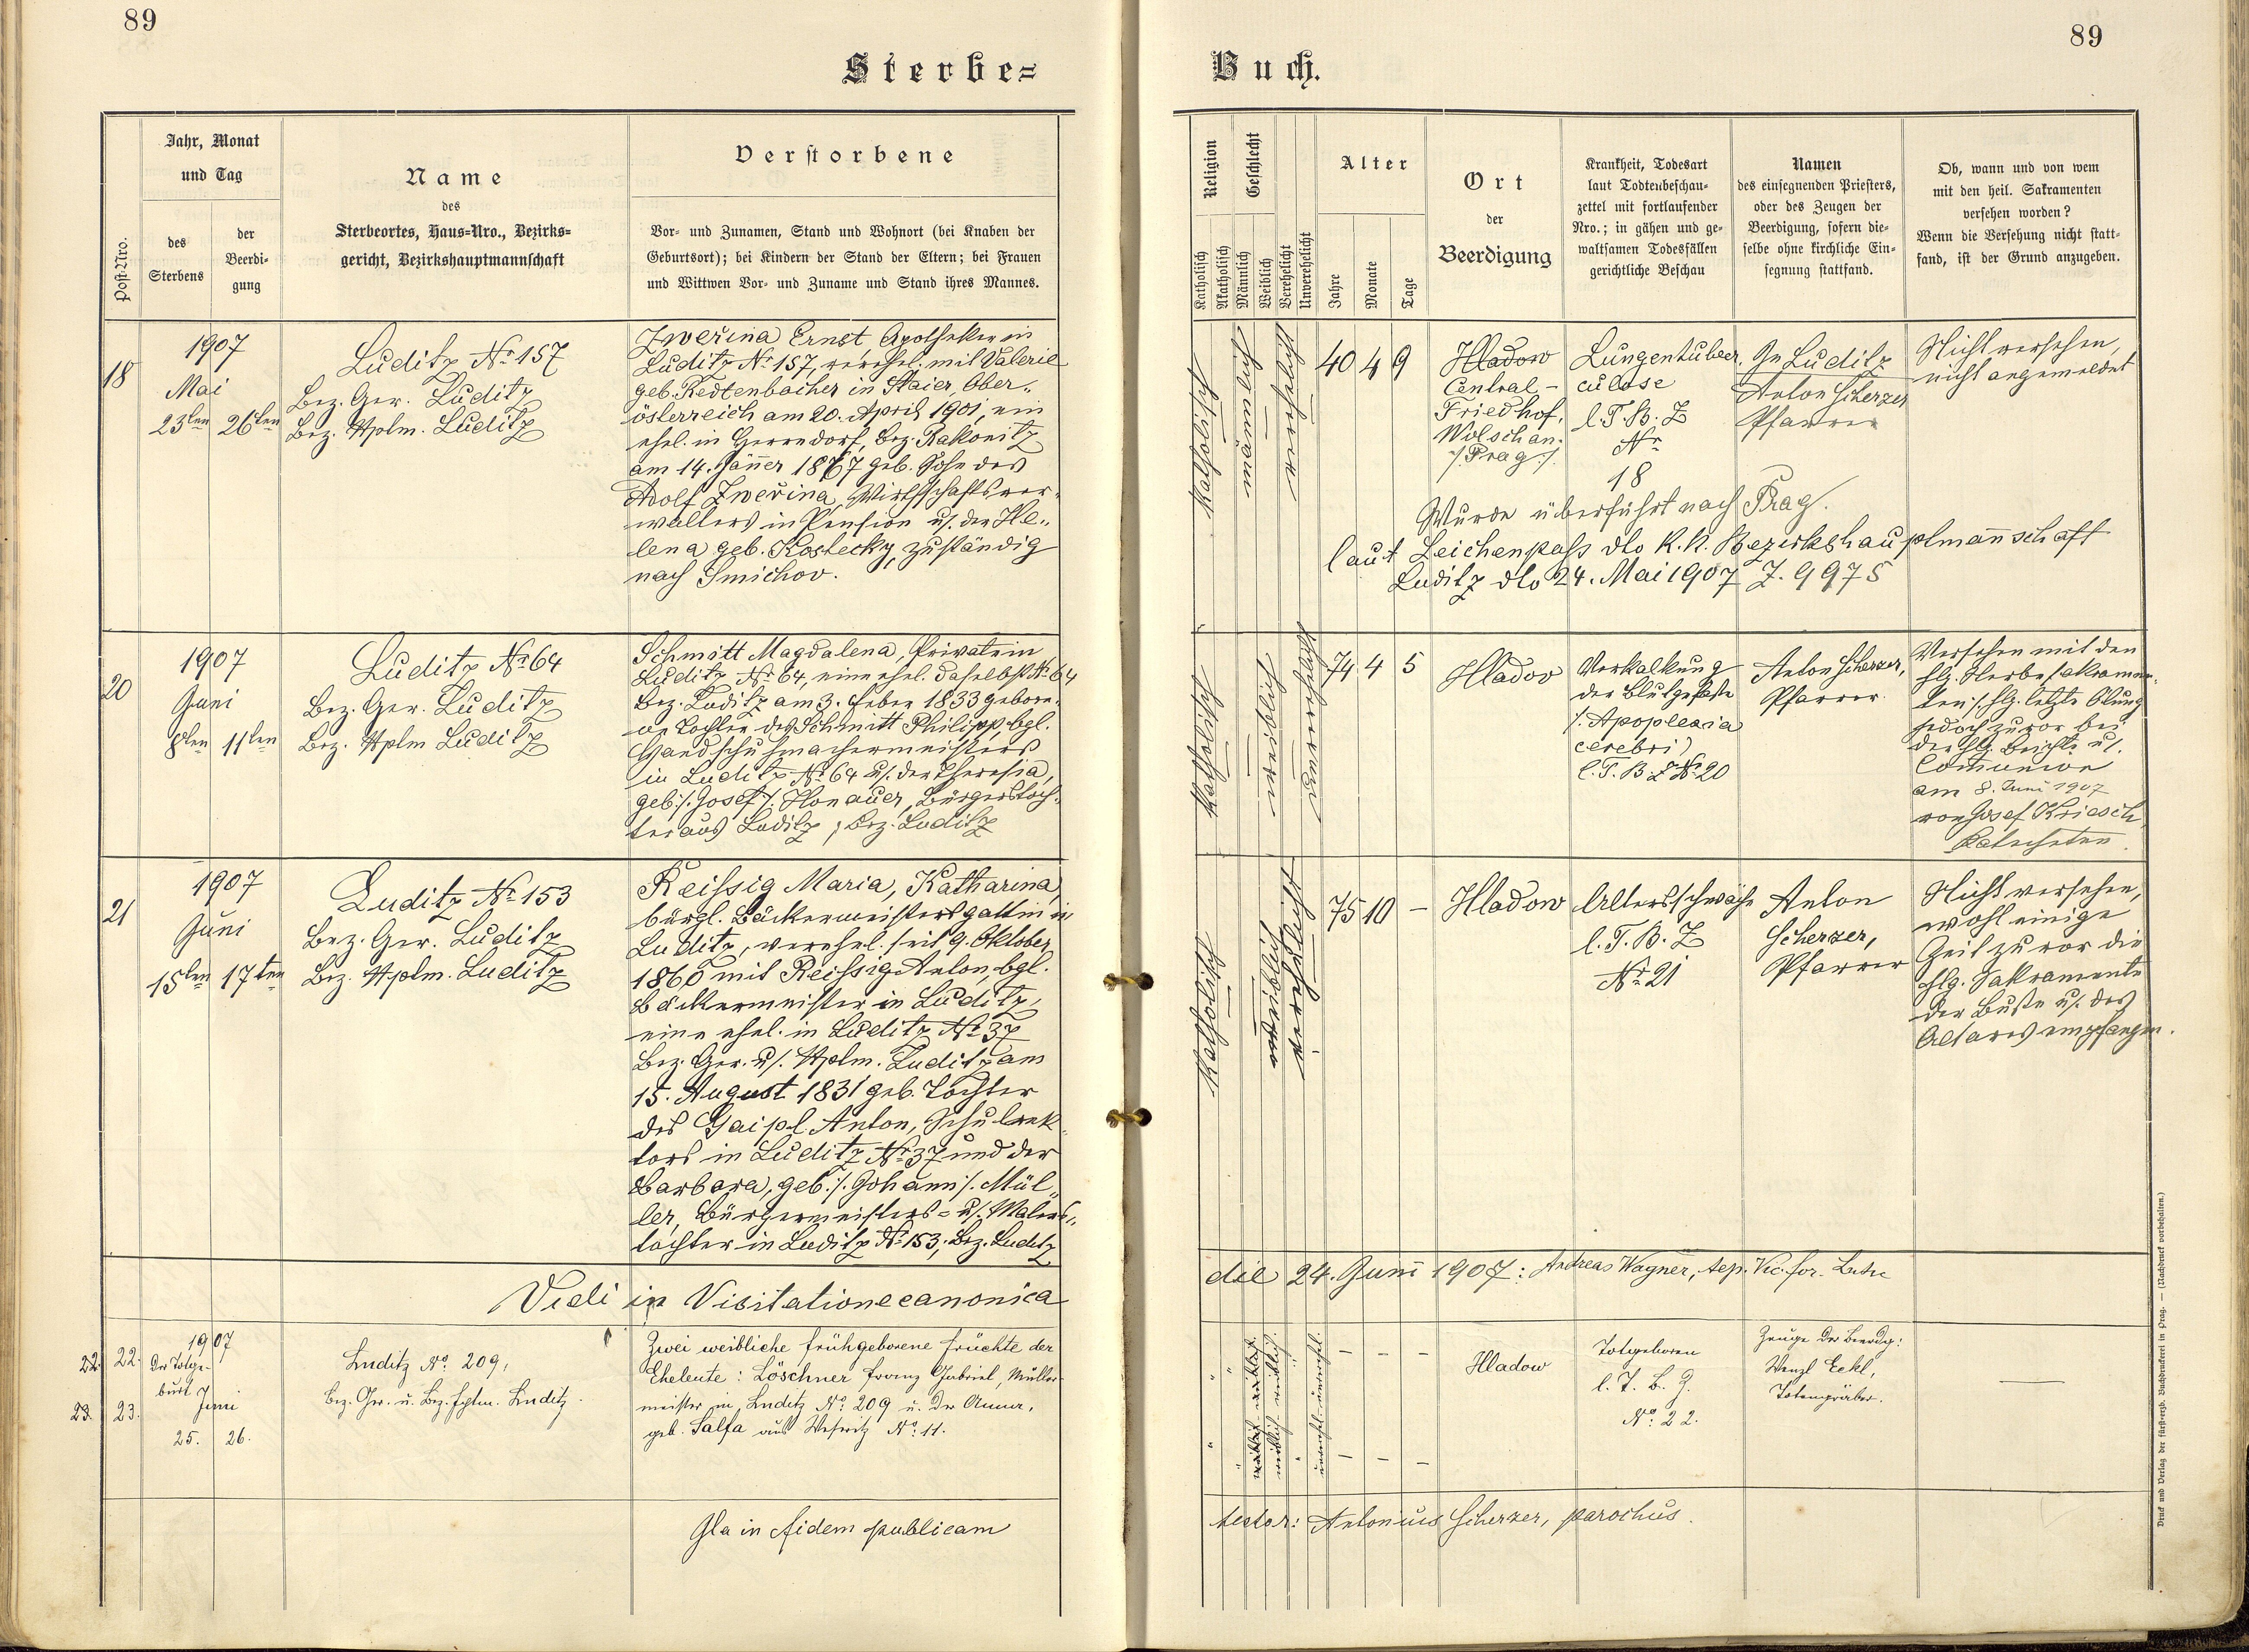 89
89
Sterbe=
Buch.
Post-Nro.
Jahr, Monat
und Tag
des
Sterbens
der
Beerdi-
gung
Name
des
Sterbeortes, Haus-Nro., Bezirks-
gericht, Bezirkshauptmannschaft
Verstorbene
Vor- und Zunamen, Stand und Wohnort (bei Knaben der
Geburtsort); bei Kindern der Stand der Eltern; bei Frauen
und Wittwen Vor- und Zuname und Stand ihres Mannes.
Religion
Katholisch
Akatholisch
Geschlecht
Männlich
Weiblich
Verehelicht
Unverehelicht
Alter
Jahre
Monate
Tage
Ort
der
Beerdigung
Krankheit, Todesart
laut Todtenbeschau-
zettel mit fortlaufender
Nro.; in gähen und ge-
waltsamen Todesfällen
gerichtliche Beschau
Namen
des einsegnenden Priesters,
oder des Zeugen der
Beerdigung, sofern die-
selbe ohne kirchliche Ein-
segnung stattfand.
Ob, wann und von wem
mit den heil. Sakramenten
versehen worden?
Wenn die Versehung nicht statt-
fand, ist der Grund anzugeben.
18
1907
Mai
23ten 26ten
Luditz Nr 157
Bez. Ger. Luditz
Bez. Hptm. Luditz
Zweřina Ernst Apotheker in
Luditz Nr 157, verehel. mit Valerie
geb. Redtenbacher in Staier, Ober-
österreich am 20. April 1901, ein
ehel. in Herrndorf, Bez. Rakonitz
am 14. Jänner 1867 geb. Sohn des
Adolf Zweřina, Wirthschaftsver-
walters in Pension u. der He-
lena geb. Kostecky, zuständig
nach Smichov.
katholisch
verehelicht
40 4 9
Hladow
Central-
Friedhof,
Wolschan.
/:Prag:/
Lungentuber-
culose
l. T. B. Z
Nr
18
In Luditz
Anton Scherzer
Pfarrer
Nicht versehen,
nicht angemeldet
Wurde überführt nach Prag.
laut Leichenpass dto K. K. Bezirkshauptmannschaft
Luditz dto 24. Mai 1907 Z. 9975
20
1907
Juni
8ten 11ten
Luditz Nr 64
Bez. Ger. Luditz
Bez. Hptm Luditz
Schmitt Magdalena, Private in
Luditz Nr 64, eine ehel. daselbst Nr 64
Bez. Luditz am 3. Feber 1833 gebore-
ne Tochter des Schmitt Philipp, bgl.
Handschuhmachermeisters
in Luditz Nr 64 u. der Theresia,
geb. /:Josef:/ Honauer, Bürgerstoch-
ter aus Luditz, Bez. Luditz
katholisch
weiblich
unverehelicht
74 4 5
Hladov
Verkalkung
der Blutgefäße
/:Apoplexia
cerebri)
l. T. B Z Nr 20
Anton Scherzer,
Pfarrer.
Versehen mit den
hlg. Sterbesakramen-
ten /:hlg. letzte Ölung
jedoch zuvor bei
der hlg. Beichte u.
Comunion
am 8. Juni 1907
von Josef Kriesch,
Katecheten.
21
1907
Juni
15ten 17ten
Luditz Nr 153
Bez. Ger. Luditz
Bez. Hptm. Luditz
Reissig Maria, Katharina,
bürgl. Bäckermeistersgattin in
Luditz, verehel. seit 9. Oktober
1860 mit Reissig Anton, bgl.
Bäckermeister in Luditz,
eine ehel. in Luditz Nr 37
Bez. Ger. u. Hptm. Luditz am
15. August 1831 geb. Tochter
des Gaipl Anton, Schulrek-
tors in Luditz Nr 37 und der
Barbara, geb. /:Johann:/ Mül-
ler, Bürgermeisters- u. Malers-
tochter in Luditz Nr 153, Bez. Luditz
katholisch
weiblich
verehelicht
75 10 —
Hladow
Altersschwäche
l. T. B. Z
Nr 21
Anton
Scherzer,
Pfarrer
Nicht versehen,
wohl einige
Zeit zuvor die
hlg. Sakramente
der Buße u. des
Altares empfangen.
Vidi in Visitatione canonica
die 24. Juni 1907: Andreas Wagner, Vic. for.
22. 22.
23. 23.
1907
Der Totge-
burt
Juni
25. 26.
Luditz No 209,
Bez. Ger. u. Bez. Hptm. Luditz.
Zwei weibliche frühgeborene Früchte der
Eheleute: Löschner Franz Gabriel, Müller-
meister in Luditz No 209 u. der Anna,
geb. Salfa aus Weseritz No 11.
— — —
— — —
Hladow
Totgeboren
l. T. B. Z.
No 22.
Zeuge der Beerdg:
Wenzl Eckl,
Totengräber.
In fidem publicam
testor: Antonius Scherzer, parochus.
Druck und Verlag der fürsterzb. Buchdruckerei in Prag. — (Nachdruck vorbehalten.)